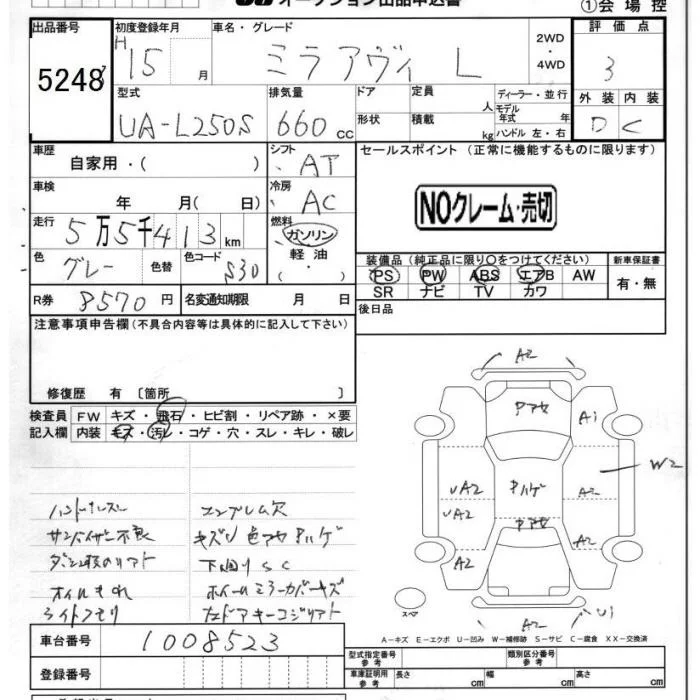 オークション出品申込書
①会場控
出品番号 初度登録年月 車名・グレード 2WD ・ 4WD 評価点
5248 H 15 月 ミラアヴィ L 3
型式 排気量 ドア 定員 人 ディーラー・並行 外装 内装
UA-L250S 660 cc 形状 積載 kg モデル年式 年 ハンドル 左・右 D C
車歴 自家用・( ) シフト AT セールスポイント (正常に機能するものに限ります)
車検 年 月( 日) 冷房 AC
NOクレーム・売切
走行 5万5千413km 燃料 ガソリン
軽油
( ・ )
色 グレー 色替 色コード S30
装備品(純正品に限り○をつけてください) 新車保証書
PS PW ABS エアB AW 有・無
SR ナビ TV カワ
R券 8570円 名変通知期限 月 日 後日品
注意事項申告欄(不具合内容等は具体的に記入して下さい)
修復歴 有 〔箇所 〕
検査員 FW キズ・飛石・ヒビ割・リペア跡・×要
記入欄 内装 キズ・汚レ・コゲ・穴・スレ・キレ・破レ
ハンドルスレ エンブレム欠
サンバイザー不良 キズU色アセPハゲ
下廻りSC
オイルもれ ホイールミラーカバーキズ
ライトクモリ
A2
Pアセ
A1
W2
UA2 Pハゲ A2
UA2 Pアセ
A2 A2
スペア
A2 U1
A-キズ E-エクボ U-凹み W-補修跡 S-サビ C-腐食 XX-交換済
車台番号 1008523
型式指定番号 参考 類別区分番号 参考
登録番号 車庫証明用 参考 長さ cm 幅 cm 高さ cm